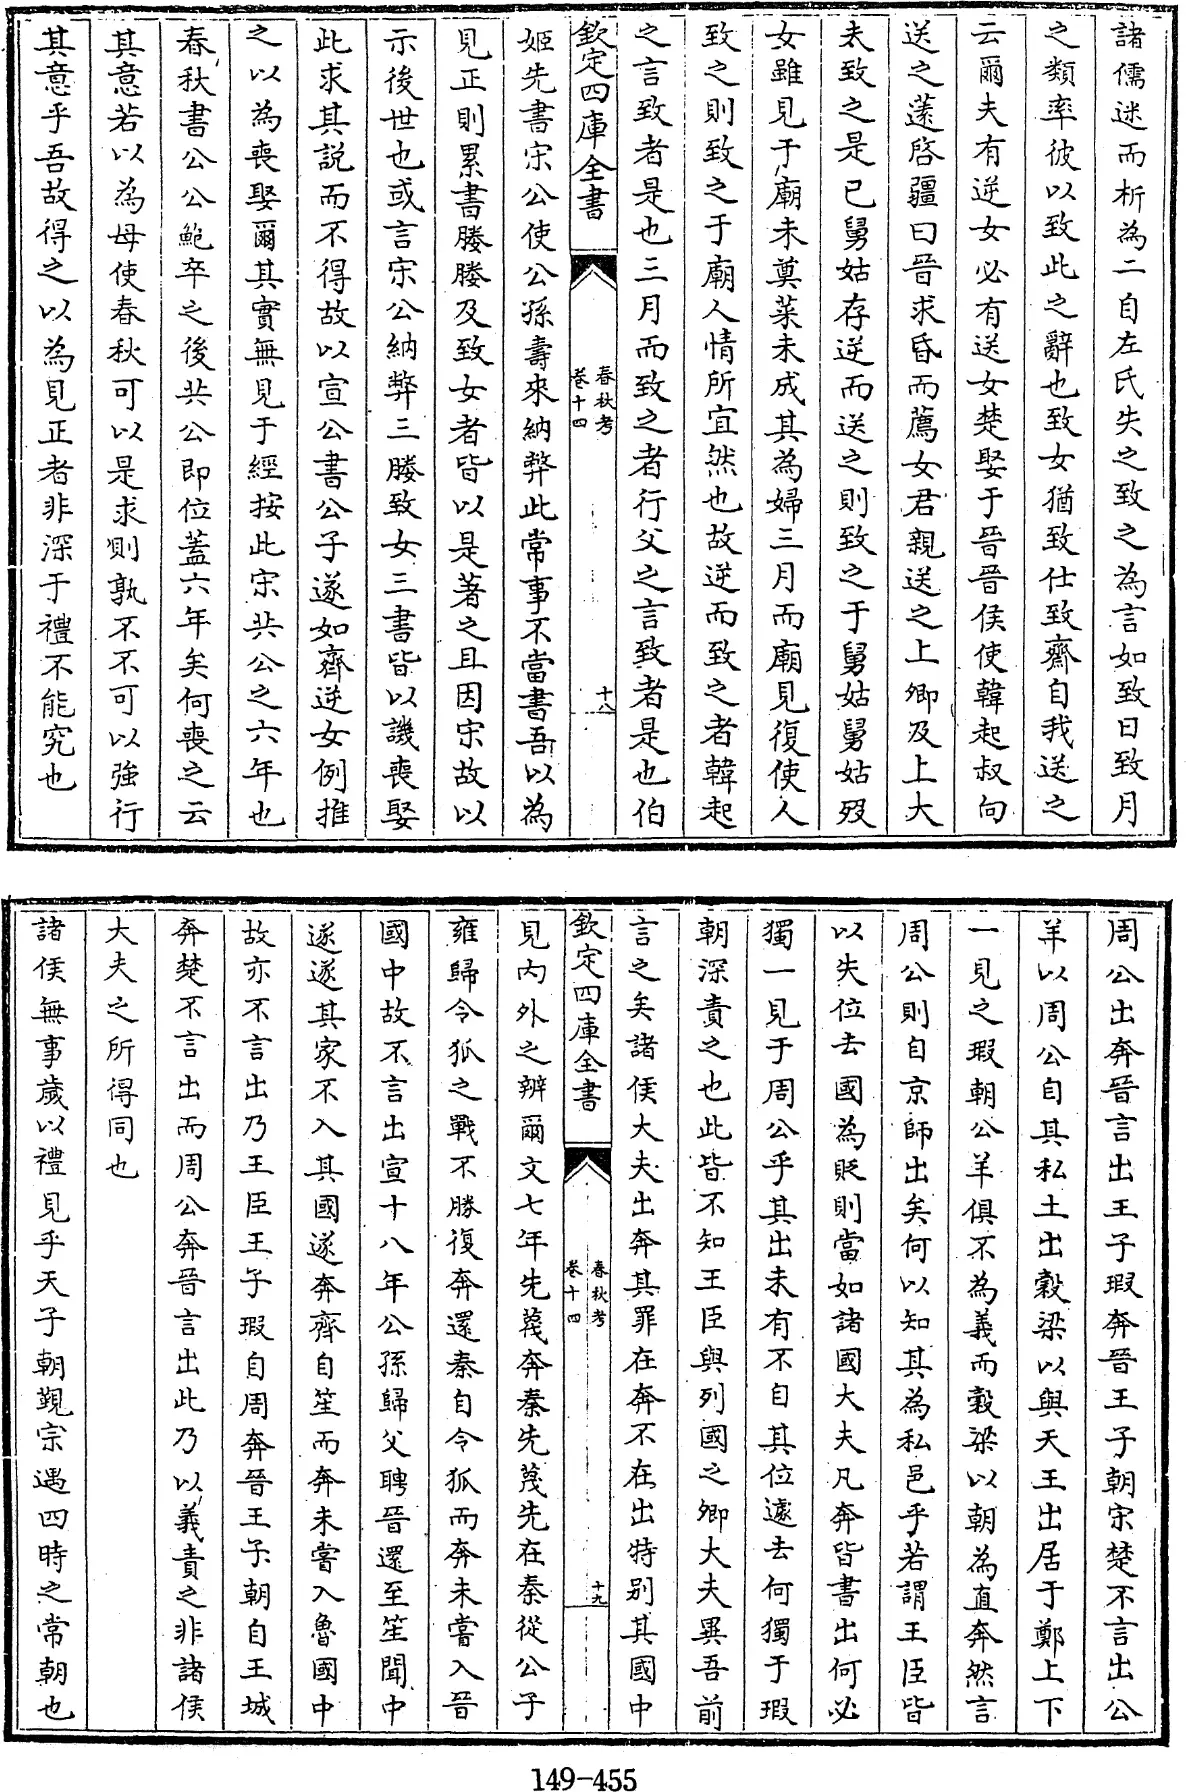 諸儒迷而析為二自左氏失之致之為言如致日致月
之類率彼以致此之辭也致女猶致仕致齋自我送之
云爾夫有逆女必有送女楚娶于晉晉侯使韓起叔向
送之薳啓疆曰晉求昏而薦女君親送之上卿及上大
夫致之是已舅姑存逆而送之則致之于舅姑舅姑殁
女雖見于廟未奠菜未成其為婦三月而廟見復使人
致之則致之于廟人情所宜然也故逆而致之者韓起
之言致者是也三月而致之者行父之言致者是也伯
欽定四庫全書
春秋考
卷十四
十八
姬先書宋公使公孫壽來納幣此常事不當書吾以為
見正則累書媵媵及致女者皆以是著之且因宋故以
示後世也或言宋公納幣三媵致女三書皆以譏喪娶
此求其説而不得故以宣公書公子遂如齊逆女例推
之以為喪娶爾其實無見于經按此宋共公之六年也
春秋書公公鮑卒之後共公即位蓋六年矣何喪之云
其意若以為母使春秋可以是求則孰不不可以強行
其意乎吾故得之以為見正者非深于禮不能究也
周公出奔晉言出王子瑕奔晉王子朝宋楚不言出公
羊以周公自其私土出穀梁以與天王出居于鄭上下
一見之瑕朝公羊俱不為義而穀梁以朝為直奔然言
周公則自京師出矣何以知其為私邑乎若謂王臣皆
以失位去國為貶則當如諸國大夫凡奔皆書出何必
獨一見于周公乎其出未有不自其位遽去何獨于瑕
朝深責之也此皆不知王臣與列國之卿大夫異吾前
言之矣諸侯大夫出奔其罪在奔不在出特别其國中
欽定四庫全書
春秋考
卷十四
十九
見内外之辨爾文七年先蔑奔秦先蔑先在秦從公子
雍歸令狐之戰不勝復奔還秦自令狐而奔未嘗入晉
國中故不言出宣十八年公孫歸父聘晉還至笙聞中
遂遂其家不入其國遂奔齊自笙而奔未嘗入魯國中
故亦不言出乃王臣王子瑕自周奔晉王子朝自王城
奔楚不言出而周公奔晉言出此乃以義責之非諸侯
大夫之所得同也
諸侯無事歲以禮見乎天子朝覲宗遇四時之常朝也
149-455